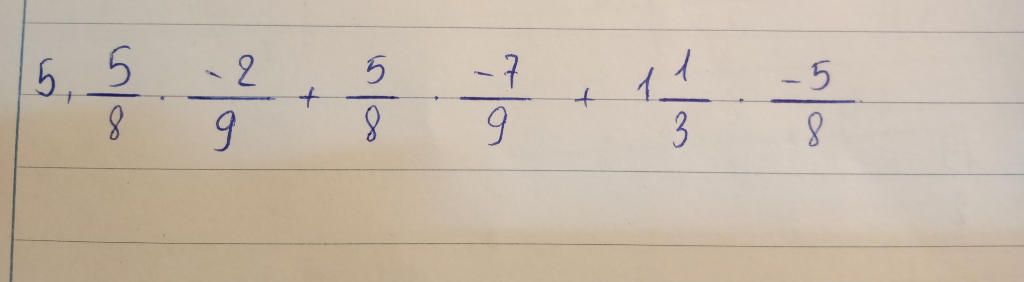 5, 5/8 . -2/9 + 5/8 . -7/9 + 1 1/3 . -5/8